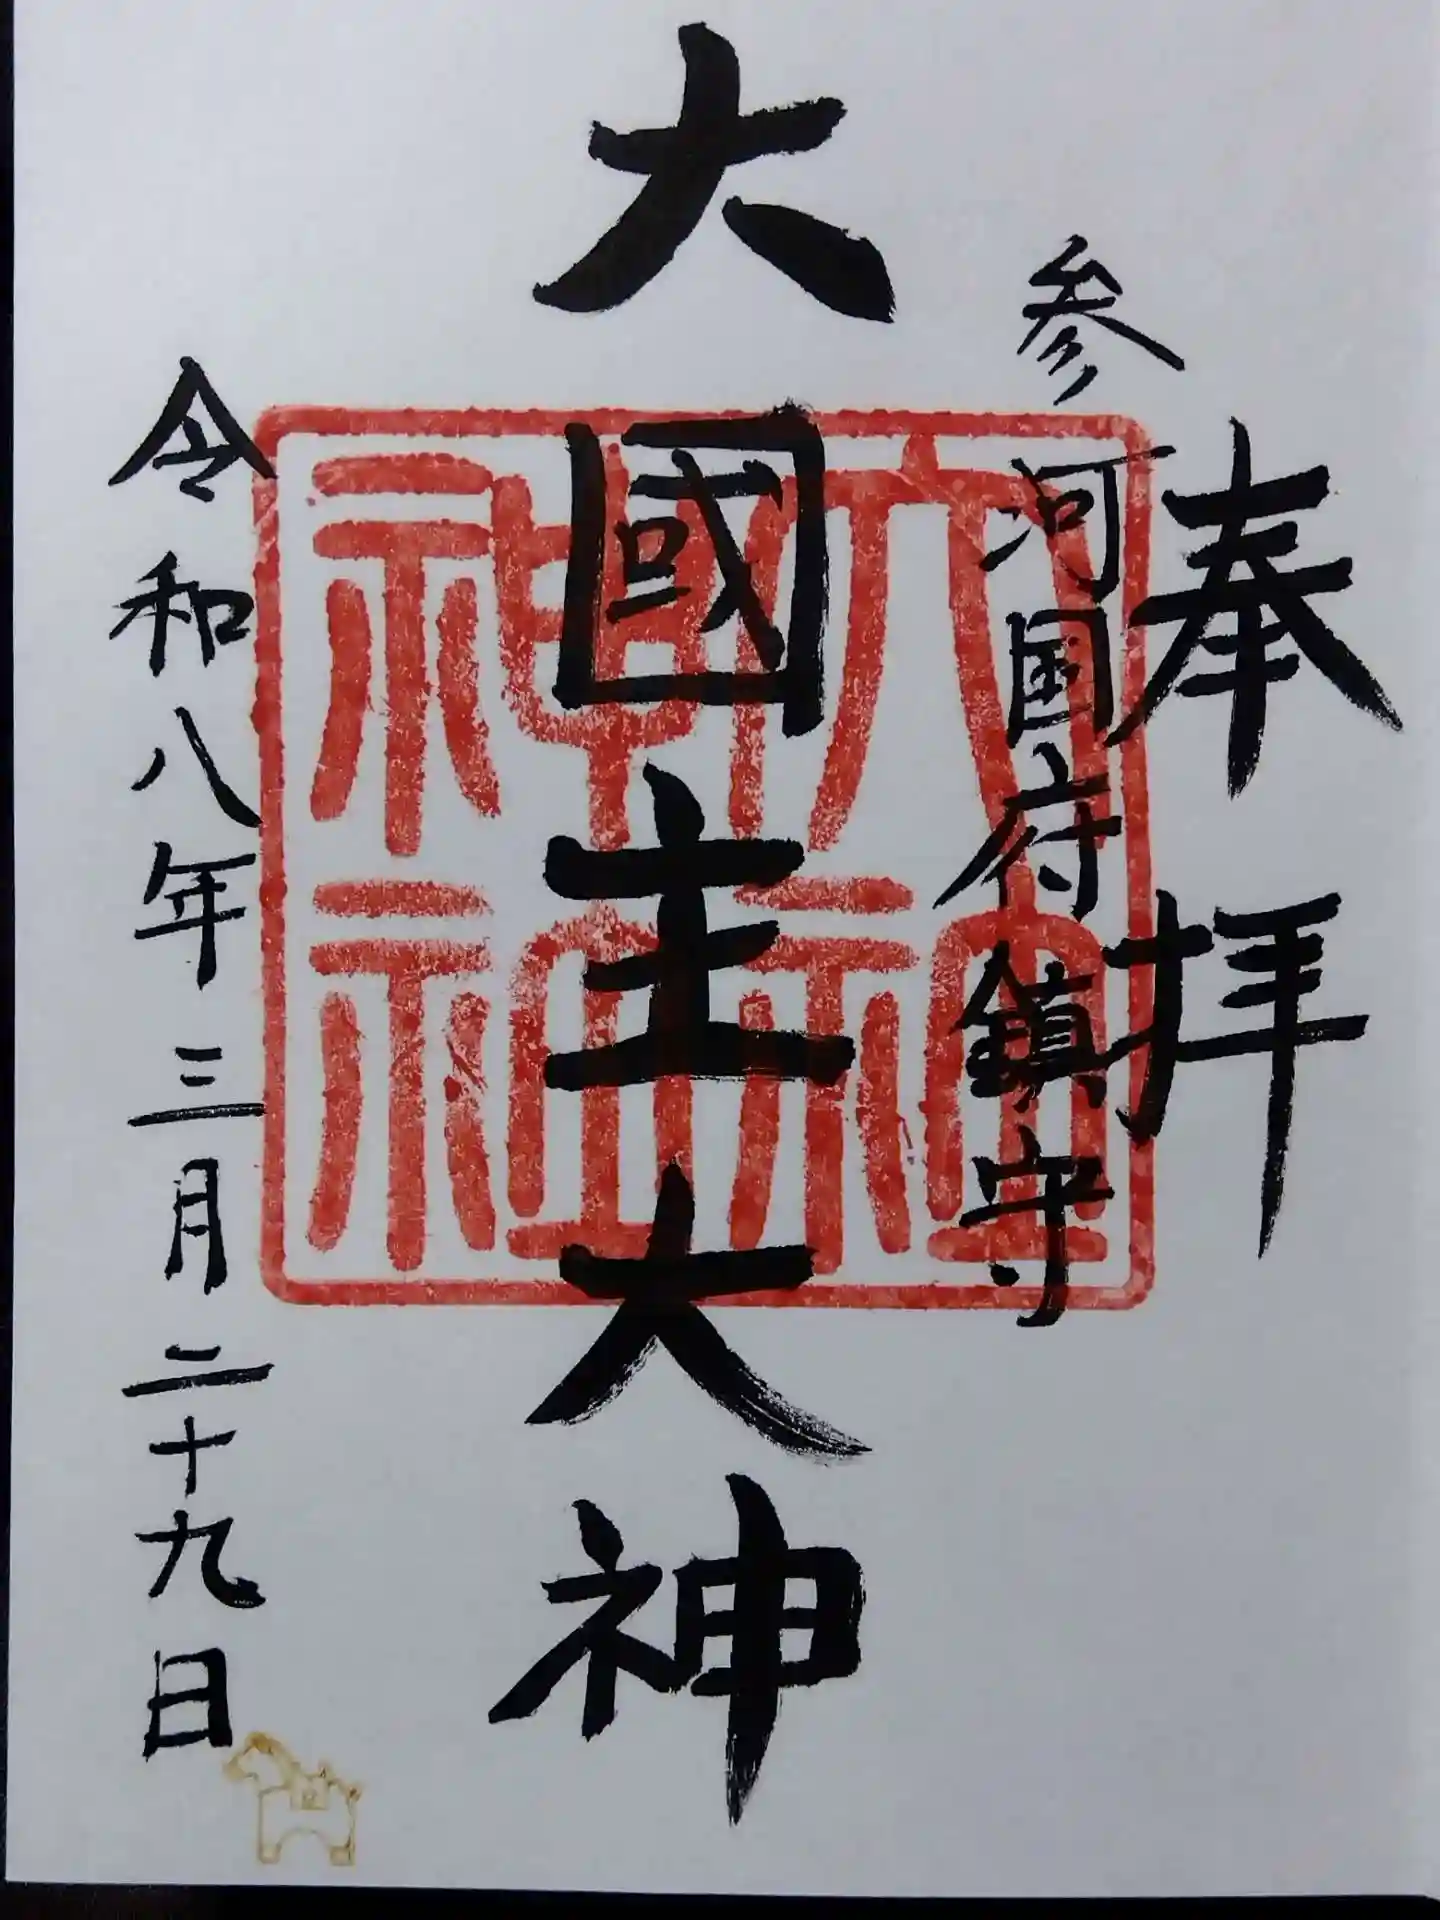 奉拝
参河国府鎮守
大國主大神
六所神社
令和八年三月二十九日